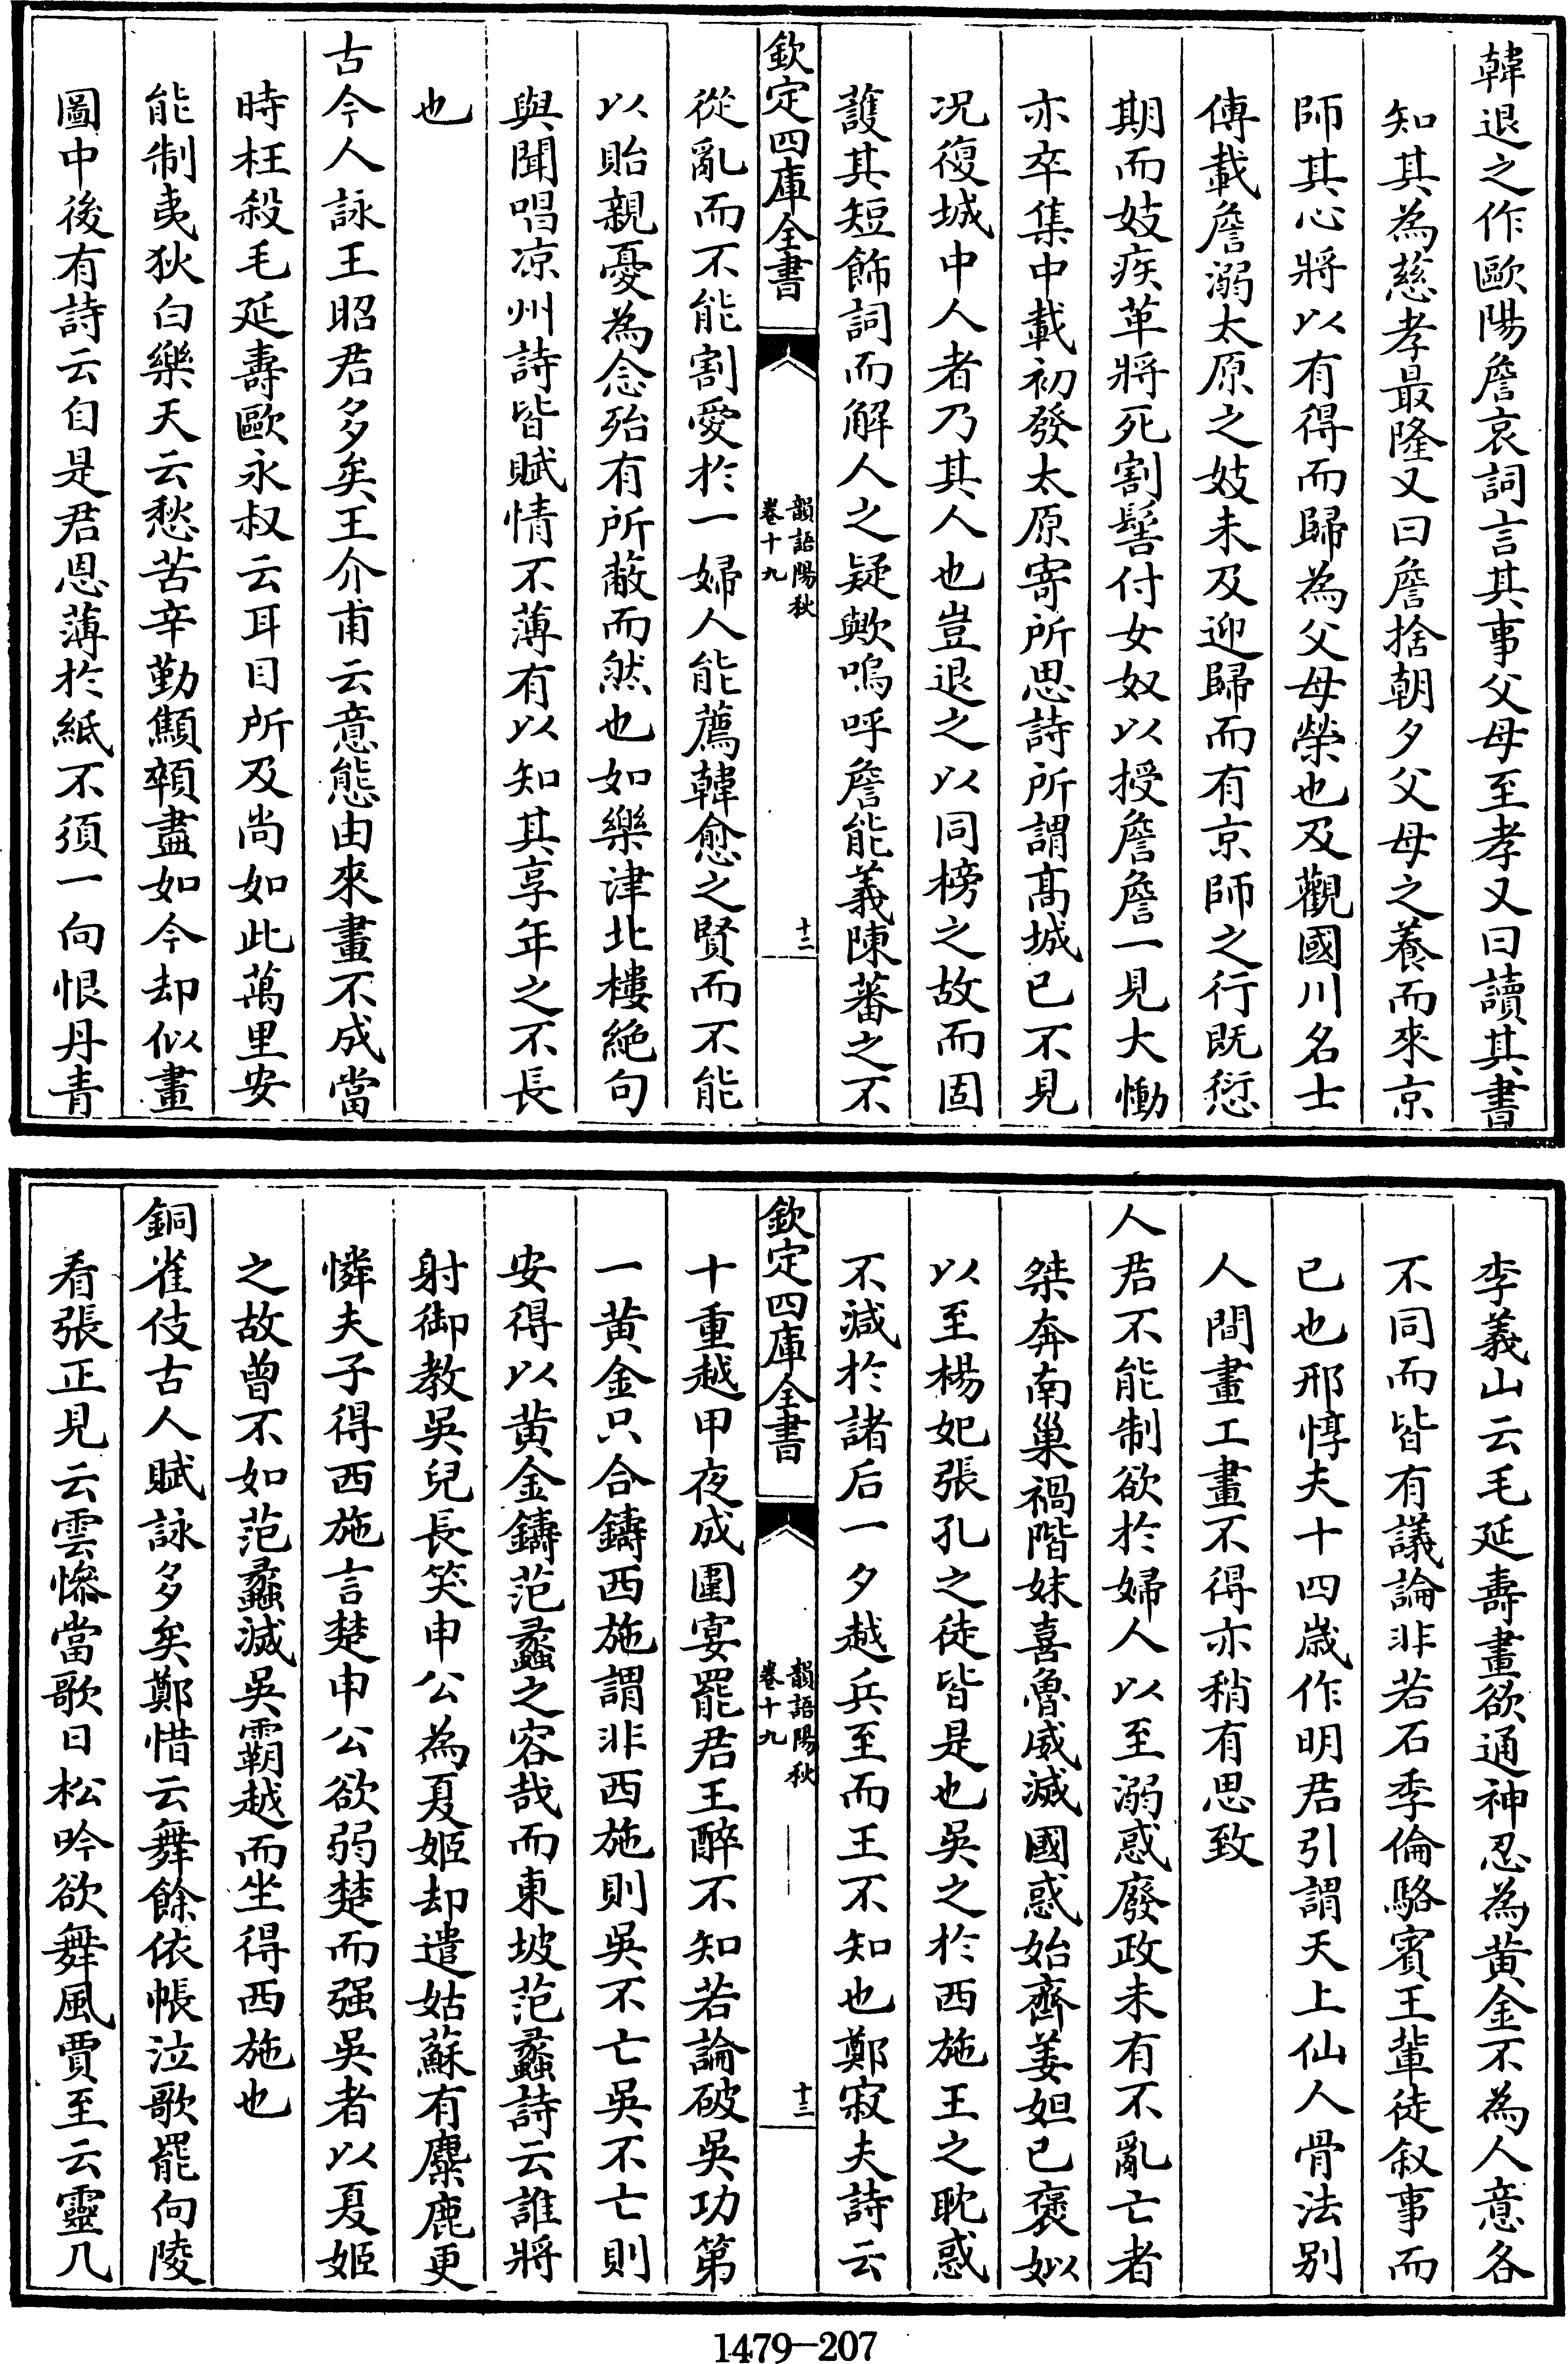 韓退之作歐陽詹哀詞言其事父母至孝又曰讀其書
知其為慈孝最隆又曰詹捨朝夕父母之養而來京
師其心將以有得而歸為父母榮也及觀國川名士
傳載詹溺太原之妓未及迎歸而有京師之行既愆
期而妓疾革將死割髻付女奴以授詹詹一見大慟
亦卒集中載初發太原寄所思詩所謂髙城已不見
况復城中人者乃其人也豈退之以同榜之故而固
護其短飾詞而解人之疑歟嗚呼詹能義陳蕃之不
欽定四庫全書
韻語陽秋
卷十九
十二
從亂而不能割愛於一婦人能薦韓愈之賢而不能
以貽親憂為念殆有所蔽而然也如樂津北樓絶句
與聞唱凉州詩皆賦情不薄有以知其享年之不長
也
古今人詠王昭君多矣王介甫云意態由來畫不成當
時枉殺毛延壽歐永叔云耳目所及尚如此萬里安
能制夷狄白樂天云愁苦辛勤顦顇盡如今却似畫
圖中後有詩云自是君恩薄於紙不須一向恨丹青
李義山云毛延壽畫欲通神忍為黄金不為人意各
不同而皆有議論非若石季倫駱賓王輩徒叙事而
已也邢惇夫十四歳作明君引謂天上仙人骨法别
人間畫工畫不得亦稍有思致
人君不能制欲於婦人以至溺惑廢政未有不亂亡者
桀奔南巢禍階妹喜魯威滅國惑始齊姜妲已褒姒
以至楊妃張孔之徒皆是也吳之於西施王之耽惑
不減於諸后一夕越兵至而王不知也鄭寂夫詩云
欽定四庫全書
韻語陽秋
卷十九
十三
十重越甲夜成圍宴罷君王醉不知若論破吳功第
一黄金只合鑄西施謂非西施則吳不亡吳不亡則
安得以黄金鑄范蠡之容哉而東坡范蠡詩云誰將
射御教吳兒長笑申公為夏姬却遣姑蘇有麋鹿更
憐夫子得西施言楚申公欲弱楚而强吳者以夏姬
之故曾不如范蠡滅吳霸越而坐得西施也
銅雀伎古人賦詠多矣鄭愔云舞餘依帳泣歌罷向陵
看張正見云雲慘當歌日松吟欲舞風賈至云靈几
1479-207